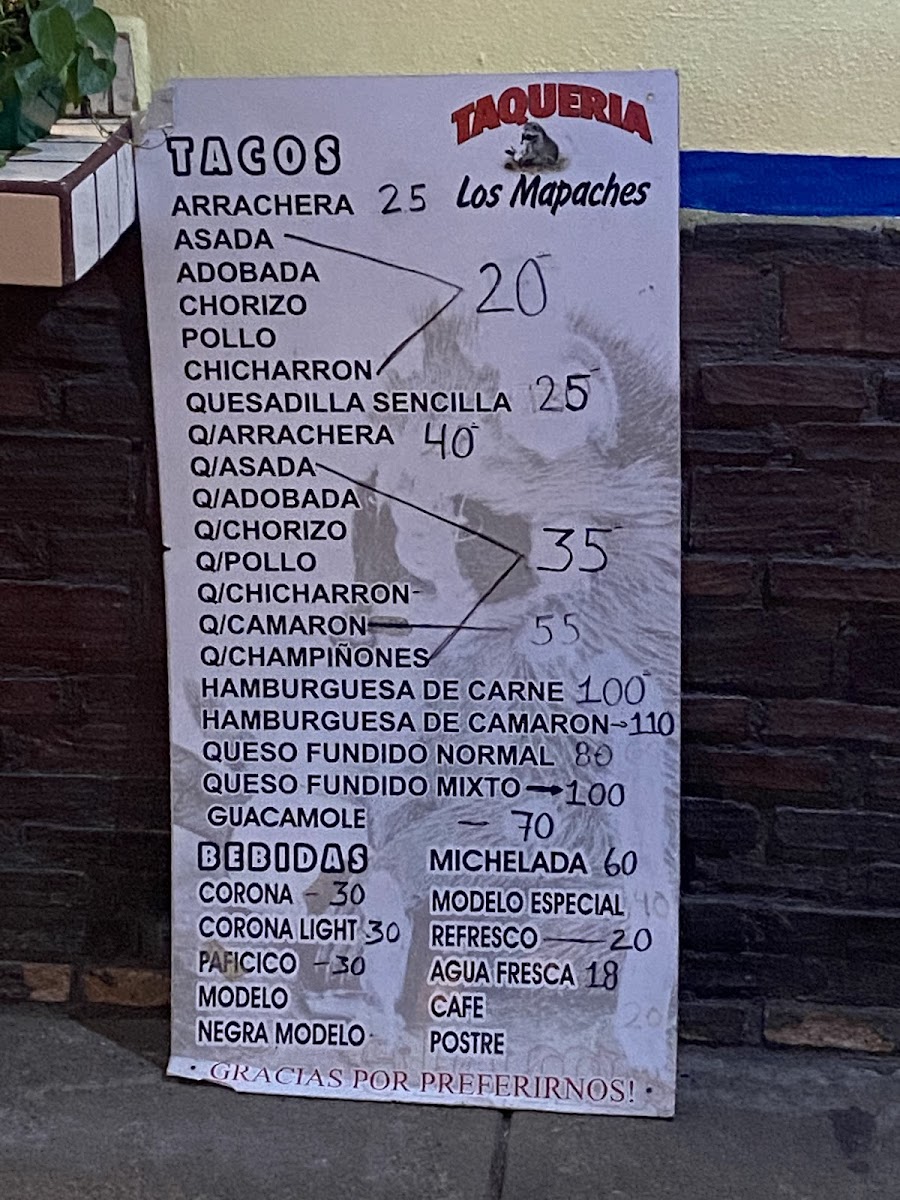 TAQUERIA
Los Mapaches
TACOS
ARRACHERA 25
ASADA
ADOBADA
CHORIZO
POLLO
CHICHARRON
20
QUESADILLA SENCILLA 25
Q/ARRACHERA 40
Q/ASADA
Q/ADOBADA
Q/CHORIZO
Q/POLLO
Q/CHICHARRON-
35
Q/CAMARON 55
Q/CHAMPIÑONES
HAMBURGUESA DE CARNE 100
HAMBURGUESA DE CAMARON→110
QUESO FUNDIDO NORMAL 80
QUESO FUNDIDO MIXTO →100
GUACAMOLE — 70
BEBIDAS
CORONA - 30
CORONA LIGHT 30
PAFICICO -30
MODELO
NEGRA MODELO
MICHELADA 60
MODELO ESPECIAL 40
REFRESCO — 20
AGUA FRESCA 18
CAFE 20
POSTRE
· GRACIAS POR PREFERIRNOS! ·